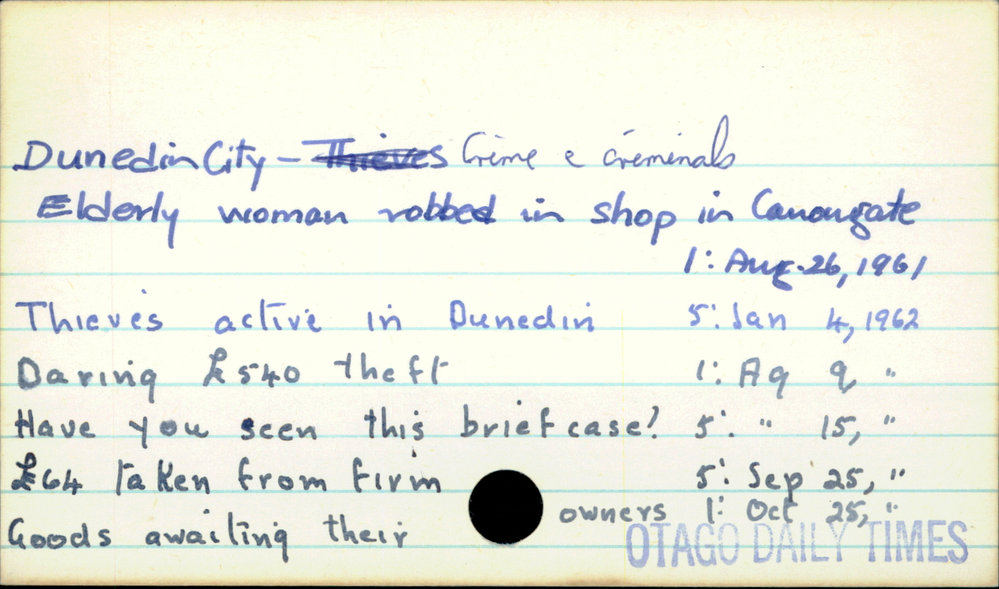 Dunedin City - Thieves Crime & criminals
Elderly woman robbed in shop in Canongate
1: Aug. 26, 1961
Thieves active in Dunedin 5: Jan 4, 1962
Daring £540 theft 1: Ag 9, "
Have you seen this briefcase? 5: " 15, "
£64 taken from firm 5: Sep 25, "
Goods awaiting their owners 1: Oct 25, "
OTAGO DAILY TIMES